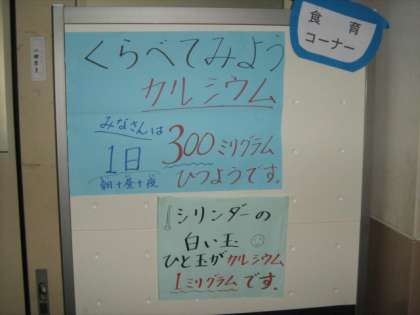 食育
コーナー
くらべてみよう
カルシウム
みなさんは
1日
朝+昼+夜
300ミリグラム
ひつようです。
シリンダーの
白い玉
ひと玉がカルシウム
1ミリグラムです。